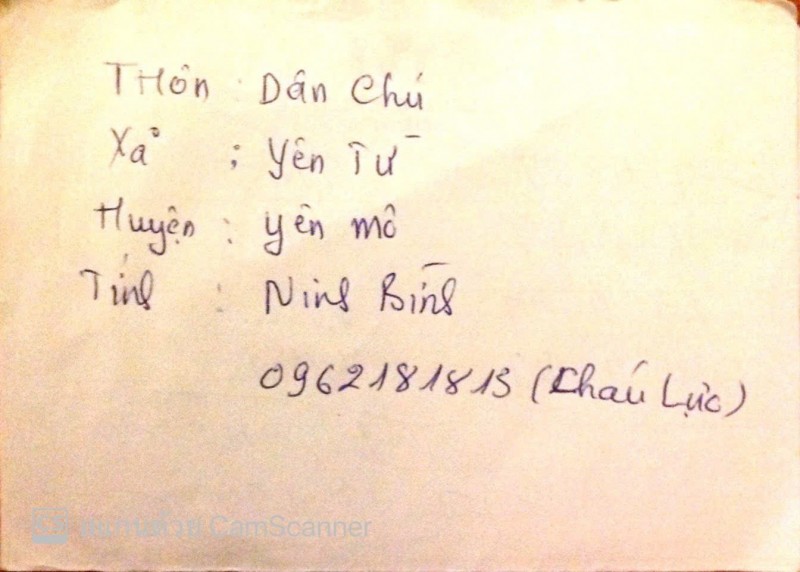 THôn : Dân Chủ
Xã : Yên Từ
Huyện : Yên mô
Tỉnh : Ninh Bình
0962181813 (Cháu Lực)
CamScanner